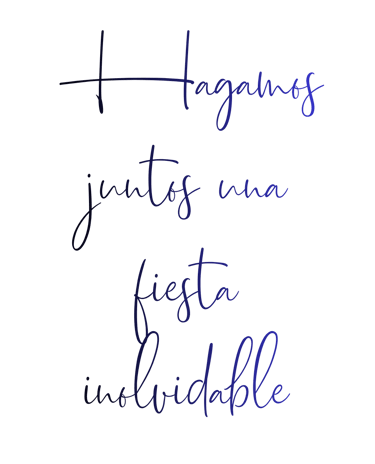 Hagamos
juntos una
fiesta
inolvidable